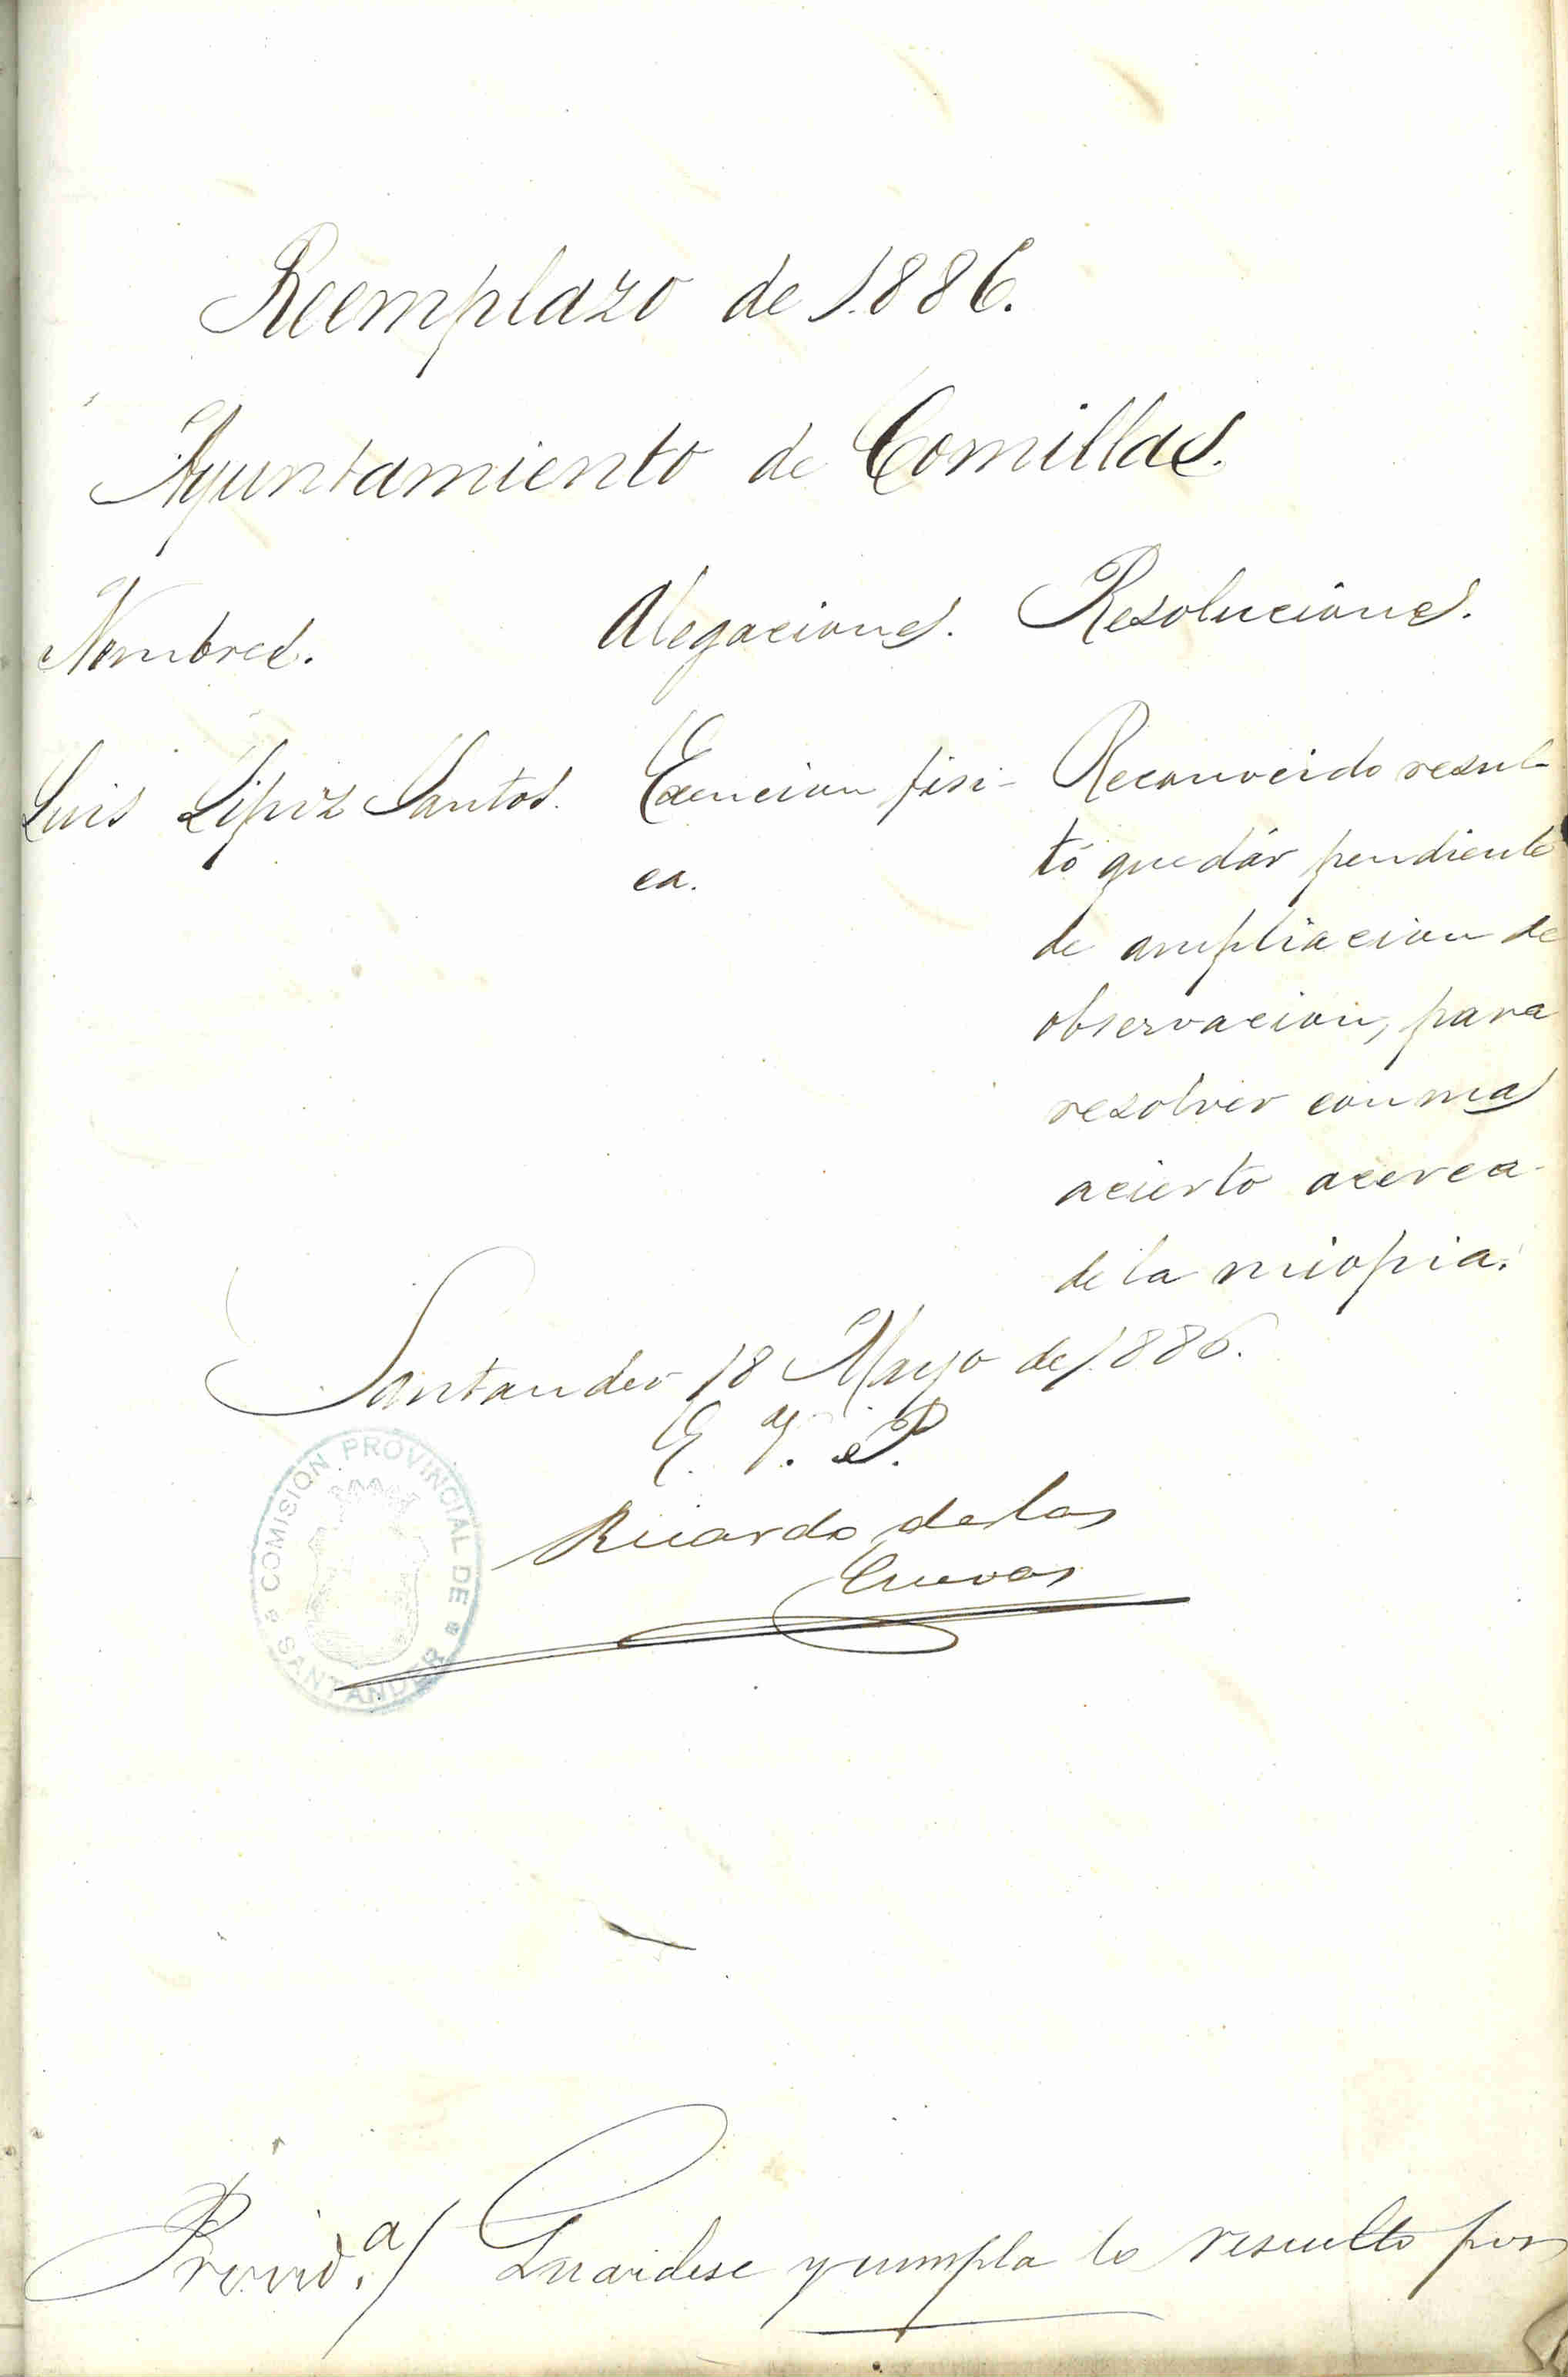 Reemplazo de 1.886.
Ayuntamiento de Comillas.
Nombres. Alegaciones. Resoluciones.
Luis Lipiz Santos. Exencion fisi- Reconocido resul-
ca. tó quedár pendiente
de ampliacion de
observacion, para
resolver con mas
acierto acerca
de la miopia.
Santander 18 Mayo de 1.886.
E. V. P.
Ricardo de las
Cuevas
COMISION PROVINCIAL DE SANTANDER
Provid.a/ Guardese y cumpla lo resuelto por